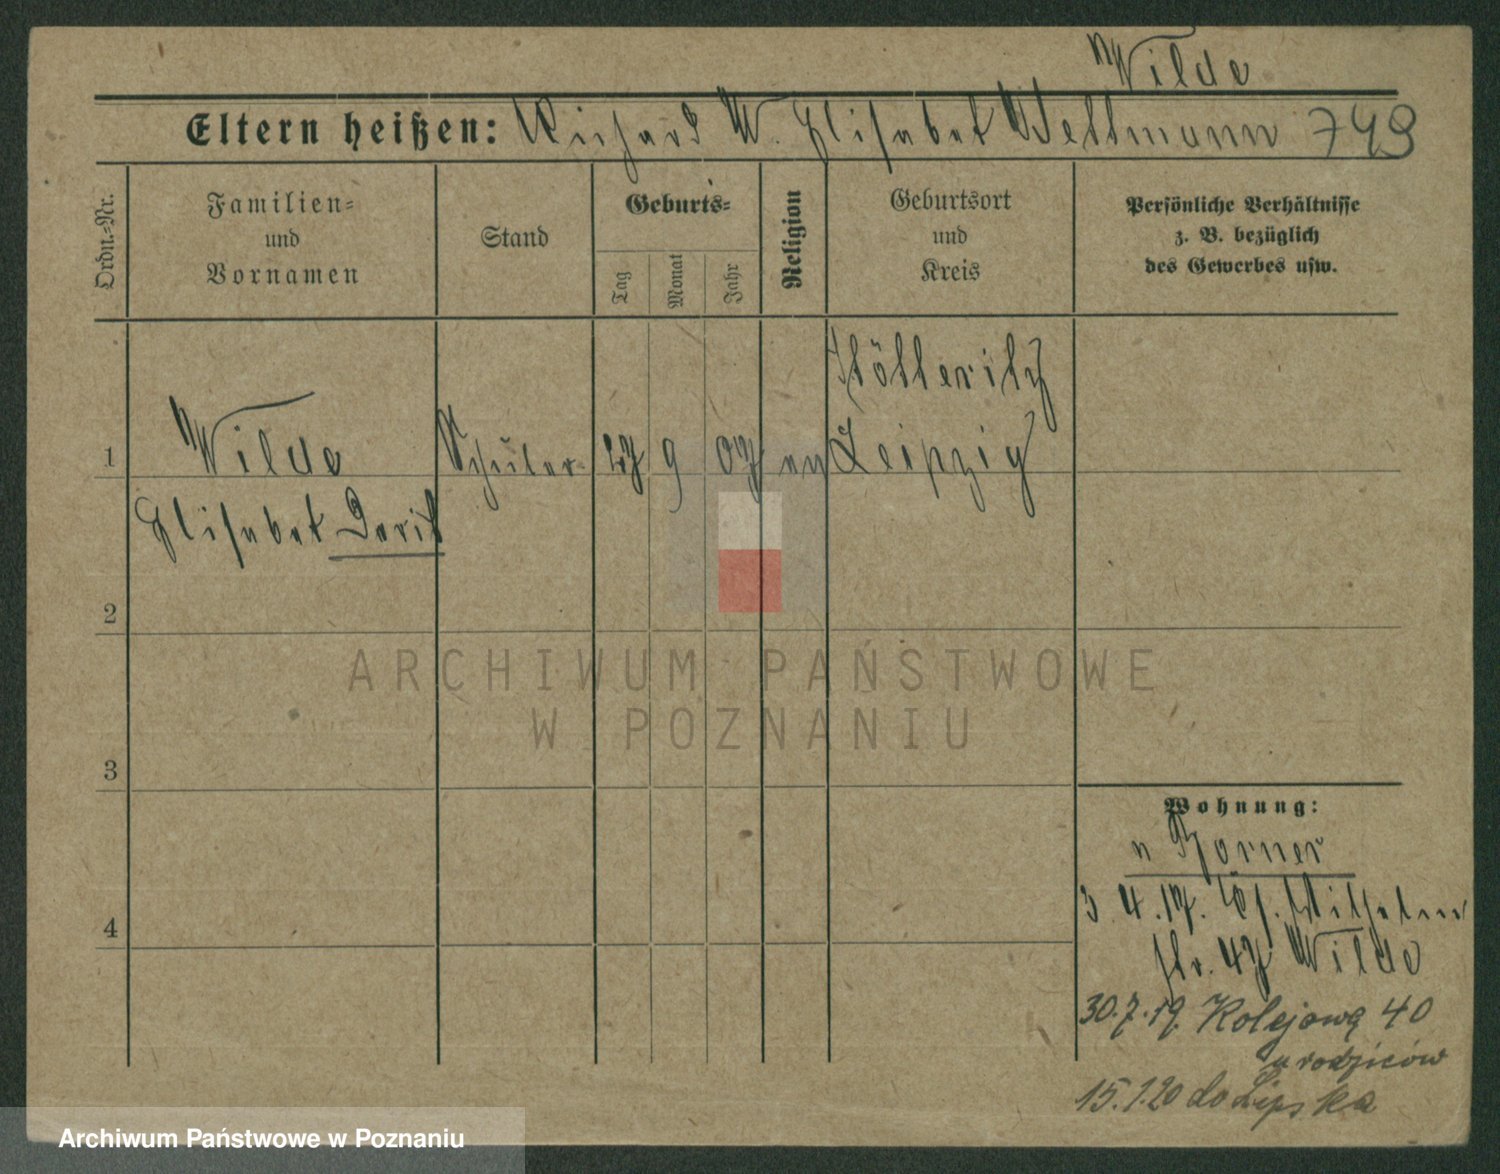 Wilde
Eltern heißen: Richard W. Elisabet Weltmann 749
Ordn.-Nr.
Familien-
und
Vornamen
Stand
Geburts-
Tag
Monat
Jahr
Religion
Geburtsort
und
Kreis
Persönliche Verhältnisse
z. B. bezüglich
des Gewerbes usw.
1
Wilde
Elisabet Dorit
Schüler
9
07
Stötteritz
Leipzig
2
3
4
ARCHIWUM PAŃSTWOWE
W POZNANIU
Wohnung:
Borner
3 4.17. Wilhelm
str. 47 Wilde
30.7.19. Kolejowa 40
u rodziców
15.1.20 do Lipska
Archiwum Państwowe w Poznaniu